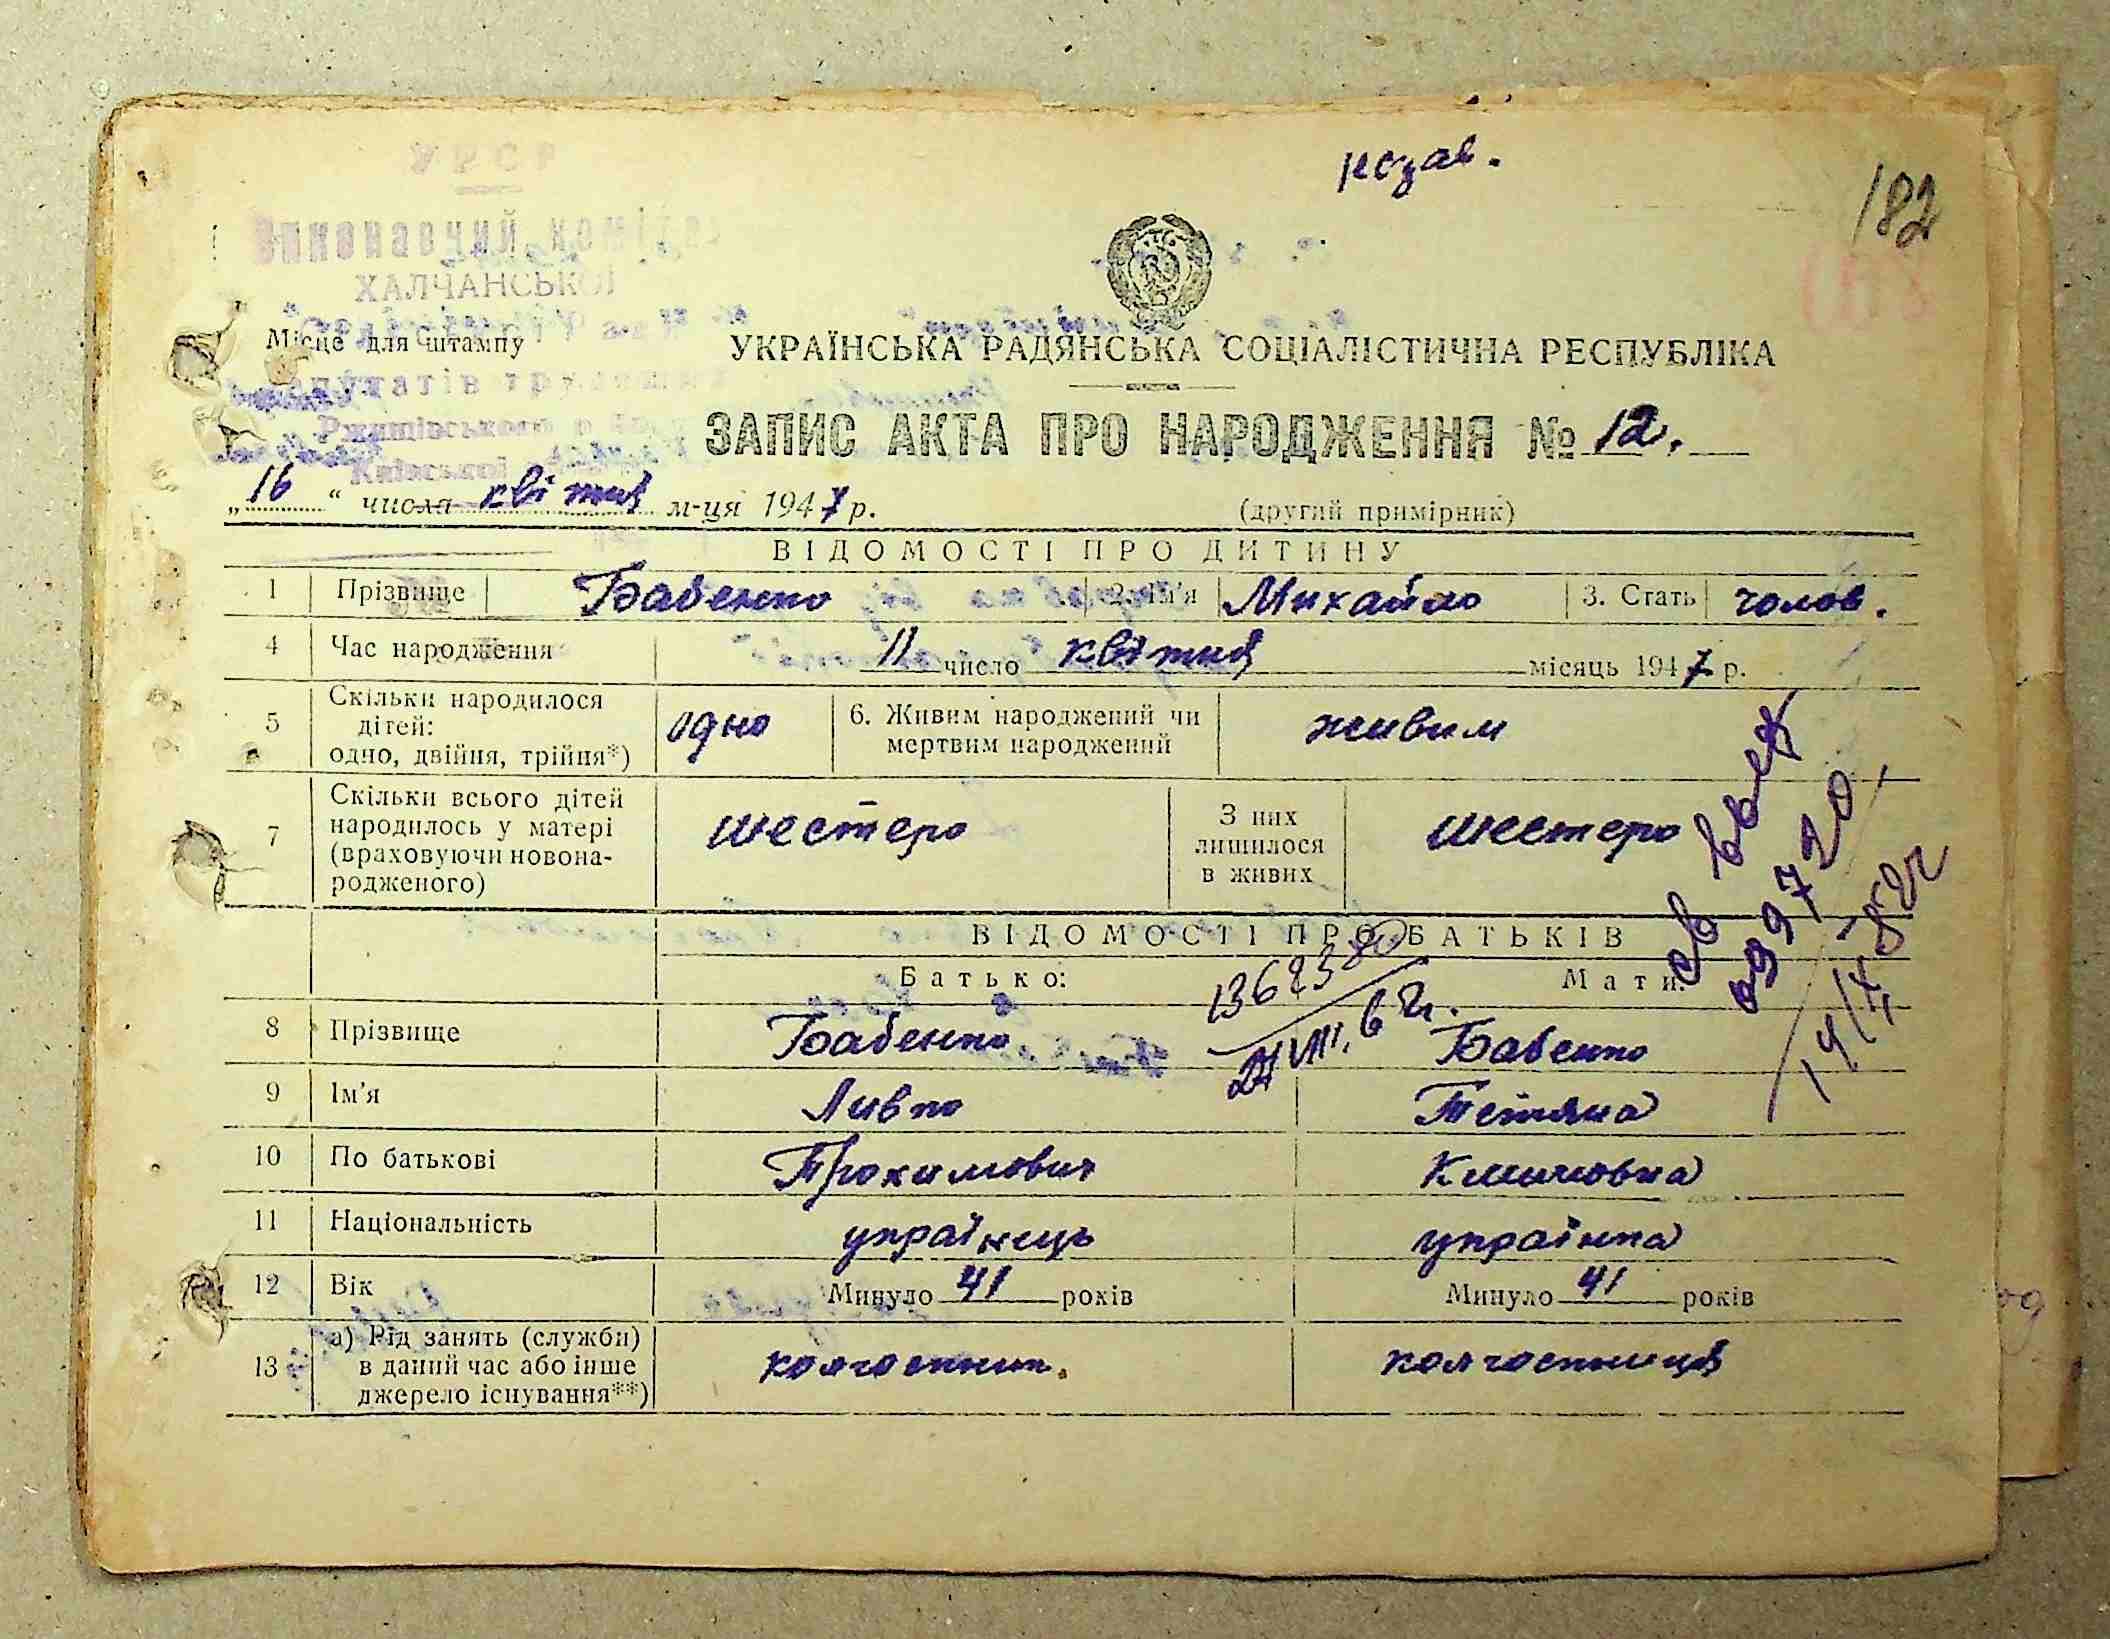 незав.
182
УРСР
Виконавчий коміте
ХАЛЧАНСЬКОЇ
Місце для штампу
УКРАЇНСЬКА РАДЯНСЬКА СОЦІАЛІСТИЧНА РЕСПУБЛІКА
депутатів трудящих
Ржищівського р
ЗАПИС АКТА ПРО НАРОДЖЕННЯ № 12.
Київської
„16“ числа квітня м-ця 1947 р.
(другий примірник)
ВІДОМОСТІ ПРО ДИТИНУ
1 Прізвище Бабенко 2. Ім'я Михайло 3. Стать чолов.
4 Час народження 11 число квітня місяць 1947 р.
5 Скільки народилося дітей: одно, двійня, трійня*) одно 6. Живим народжений чи мертвим народжений живим
7 Скільки всього дітей народилось у матері (враховуючи новонародженого) шестеро З них лишилося в живих шестеро
099720
14/IX 82г
ВІДОМОСТІ ПРО БАТЬКІВ
Батько: Мати:
1362380
VIII. 62г.
8 Прізвище Бабенко Бабенко
9 Ім'я Кивко Тетяна
10 По батькові Трохимович Климовна
11 Національність українець українка
12 Вік Минуло 41 років Минуло 41 років
13 а) Рід занять (служби) в даний час або інше джерело існування**) колгоспник. колгоспниця